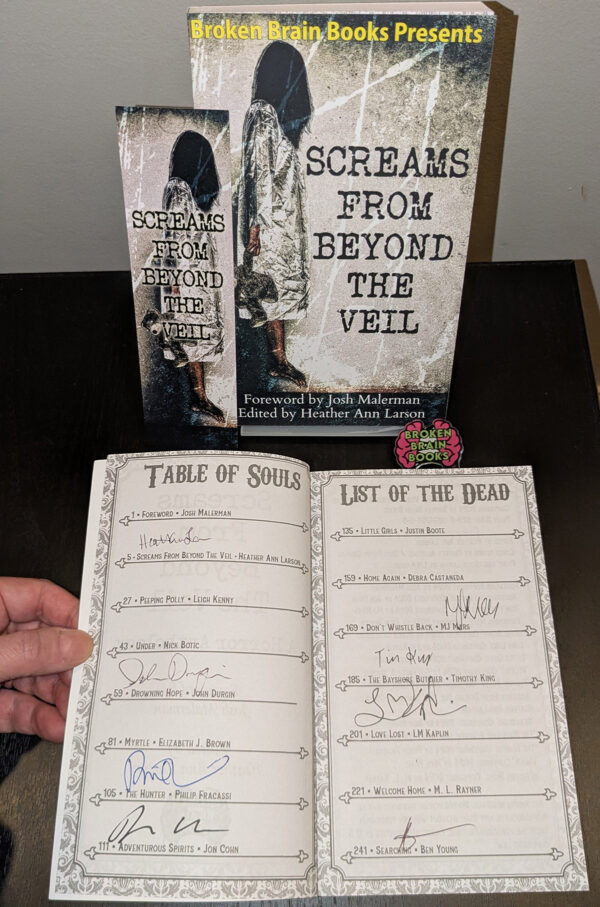 Broken Brain Books Presents
SCREAMS
FROM
BEYOND
THE
VEIL
Foreword by Josh Malerman
Edited by Heather Ann Larson
SCREAMS
FROM
BEYOND
THE
VEIL
BROKEN
BRAIN
BOOKS
TABLE OF SOULS
1 • FOREWORD • JOSH MALERMAN
5 • SCREAMS FROM BEYOND THE VEIL • HEATHER ANN LARSON
27 • PEEPING POLLY • LEIGH KENNY
43 • UNDER • NICK BOTIC
John Durgin
59 • DROWNING HOPE • JOHN DURGIN
81 • MYRTLE • ELIZABETH J. BROWN
105 • THE HUNTER • PHILIP FRACASSI
111 • ADVENTUROUS SPIRITS • JON COHN
LIST OF THE DEAD
135 • LITTLE GIRLS • JUSTIN BOOTE
159 • HOME AGAIN • DEBRA CASTANEDA
169 • DON'T WHISTLE BACK • MJ MARS
Tim King
185 • THE BAYSHORE BUTCHER • TIMOTHY KING
201 • LOVE LOST • LM KAPLIN
221 • WELCOME HOME • M. L. RAYNER
241 • SEARCHING • BEN YOUNG